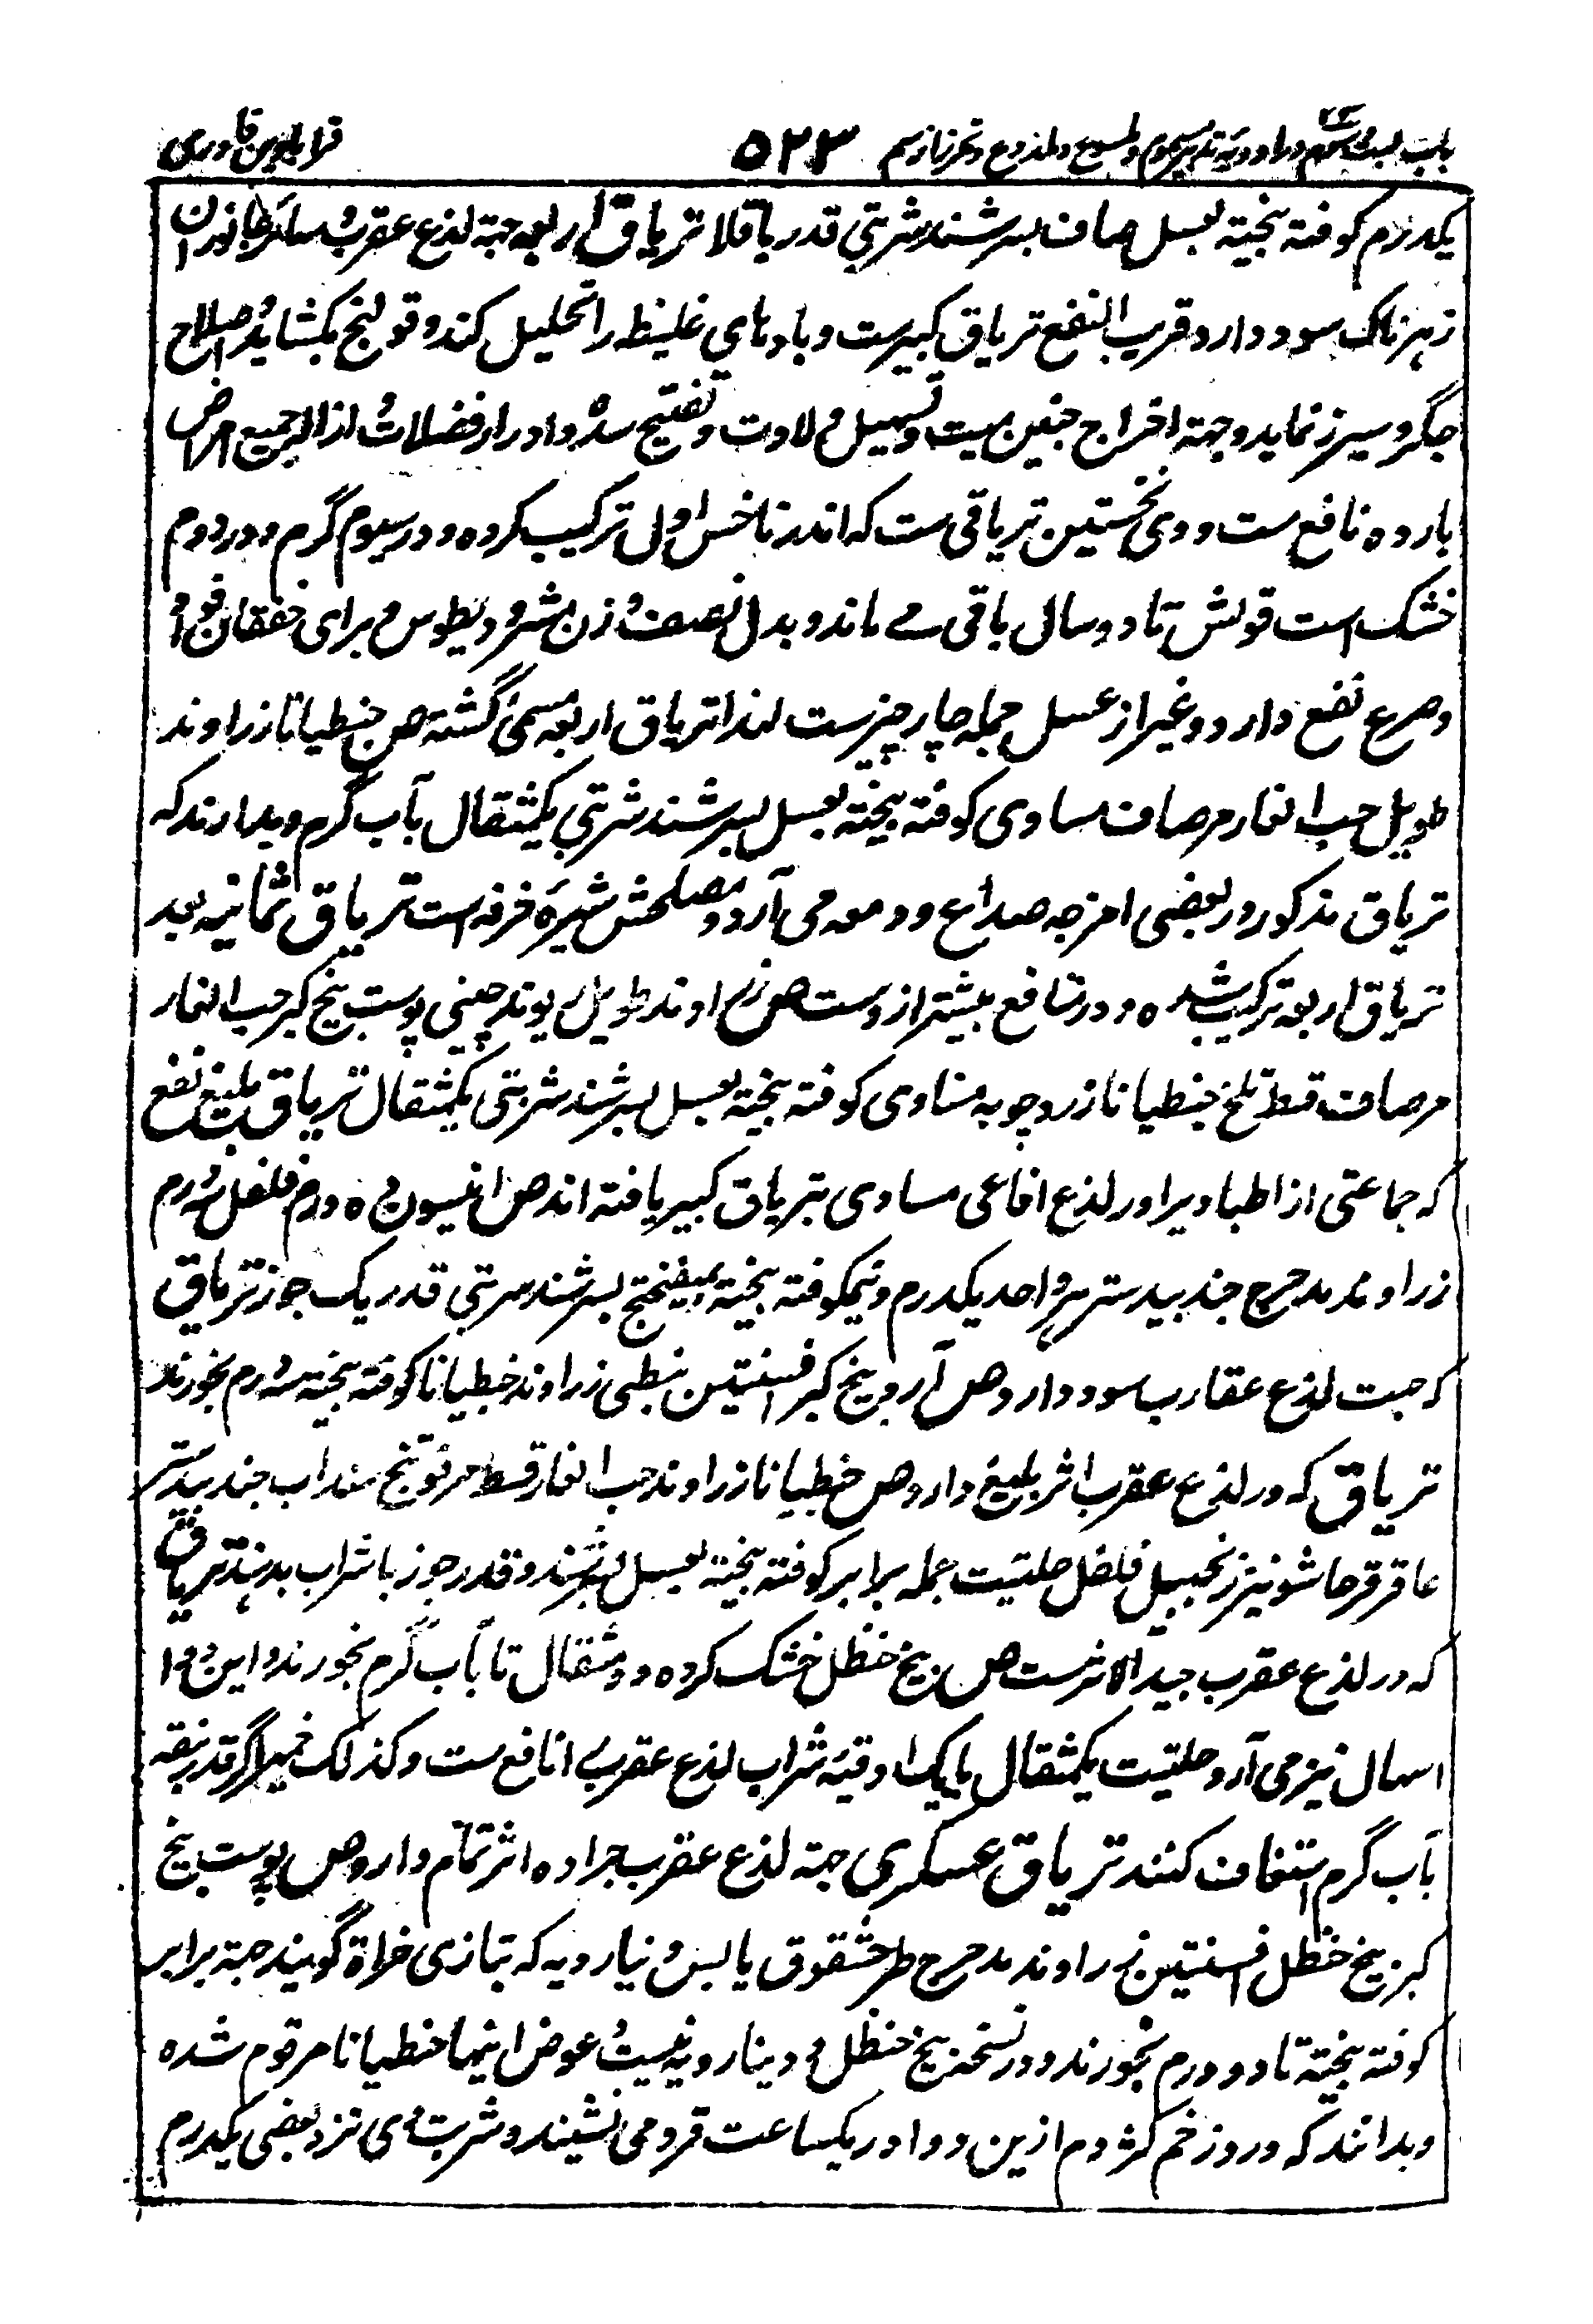 باب بست و سوم در ادویه تدبیر سموم و ملسوع و ملذوع و تحرز از سم ۵۲۳ قرابادین قادری
یکدرم کوفته بیخته بعسل صاف بسرشند شربتی قدر باقلا تریاق اربعه جهة لذع عقرب و سائر جانوران
زهرناک سود دارد قریب النفع تریاق کبیرست و بادهای غلیظه را تحلیل کند و قولنج بکشاید و اصلاح
جگر و سپرز نماید و جهة اخراج جنین میت و تسهیل ولادت و تفتیح سده و ادرار فضلات و ازاله جمیع امراض
بارده نافع ست و وی نخستین تریاقی ست که اندرماخس اول ترکیب کرده و در سیوم گرم و در دوم
خشک است قوتش تا دو سال باقی مے ماند و بدل نصف وزن مثرودیطوس و برای خفقان و فواق
و صرع نفع دارد و غیر از عسل جمله چار چیزست لهذا تریاق اربعه مسمی گشته ص جنطیانا زراوند
طویل حب الغار مر صاف مساوی کوفته بیخته بعسل بسرشند شربتی یکمثقال بآب گرم و بدارند که
تریاق مذکور در بعضی امزجه صداع و دمعه می آرد و مصلحش شیرهٔ خرفه است تریاق ثمانیه بعد
تریاق اربعه ترکیب شده و در منافع بیشتر ازوست ص زراوند طویل ریوند چینی پوست بیخ کبر حب الغار
مر صاف قسط تلخ جنطیانا زردچوبه مساوی کوفته بیخته بعسل بسرشند شربتی یکمثقال تریاق بلیغ نفع
که جماعتی از اطبا ویرا در لذع افاعی مساوی بتریاق کبیر یافته اند ص انیسون ۵ درم فلفل سه درم
زراوند مدحرج جندبیدستر هر واحد یکدرم و نیم کوفته بیخته بمیفختج بسرشند شربتی قدر یک جوز تریاق
که جهت لذع عقارب سود دارد ص آرد بیخ کبر افسنتین نبطی زراوند جنطیانا کوفته بیخته سه درم بخورند
تریاق که در لذع عقرب اثر بلیغ دارد ص جنطیانا زراوند حب الغار قسط مر فوتنج سداب جندبیدستر
عاقرقرحا شونیز زنجبیل فلفل حلتیت جمله برابر کوفته بیخته بعسل بسرشند و قدر جوز با شراب بدهند تریاق
که در لذع عقرب جید الاثرست ص بیخ حنظل خشک کرده دو مثقال تا بآب گرم بخورند و این دوا
اسهال نیز می آرد و حلتیت یکمثقال با یک اوقیه شراب لذع عقرب را نافع ست و کذلک خمیر اگر قدر بنقه
بآب گرم استفاف کنند تریاق عسکری جهة لذع عقرب جراده اثر تمام دارد ص پوست بیخ
کبر بیخ حنظل افسنتین زراوند مدحرج طرخشقوق یابس دیناررویه که بتازی خراة گویند جمله برابر
کوفته بیخته تا دو درم بخورند و در نسخه بیخ حنظل و دینارویه نیست و عوض اینها جنطیانا مرقوم شده
و بدانند که درد زخم کژدم ازین دوا در یکساعت فرو می نشیند و شربت وی نزد بعضی یکدرم